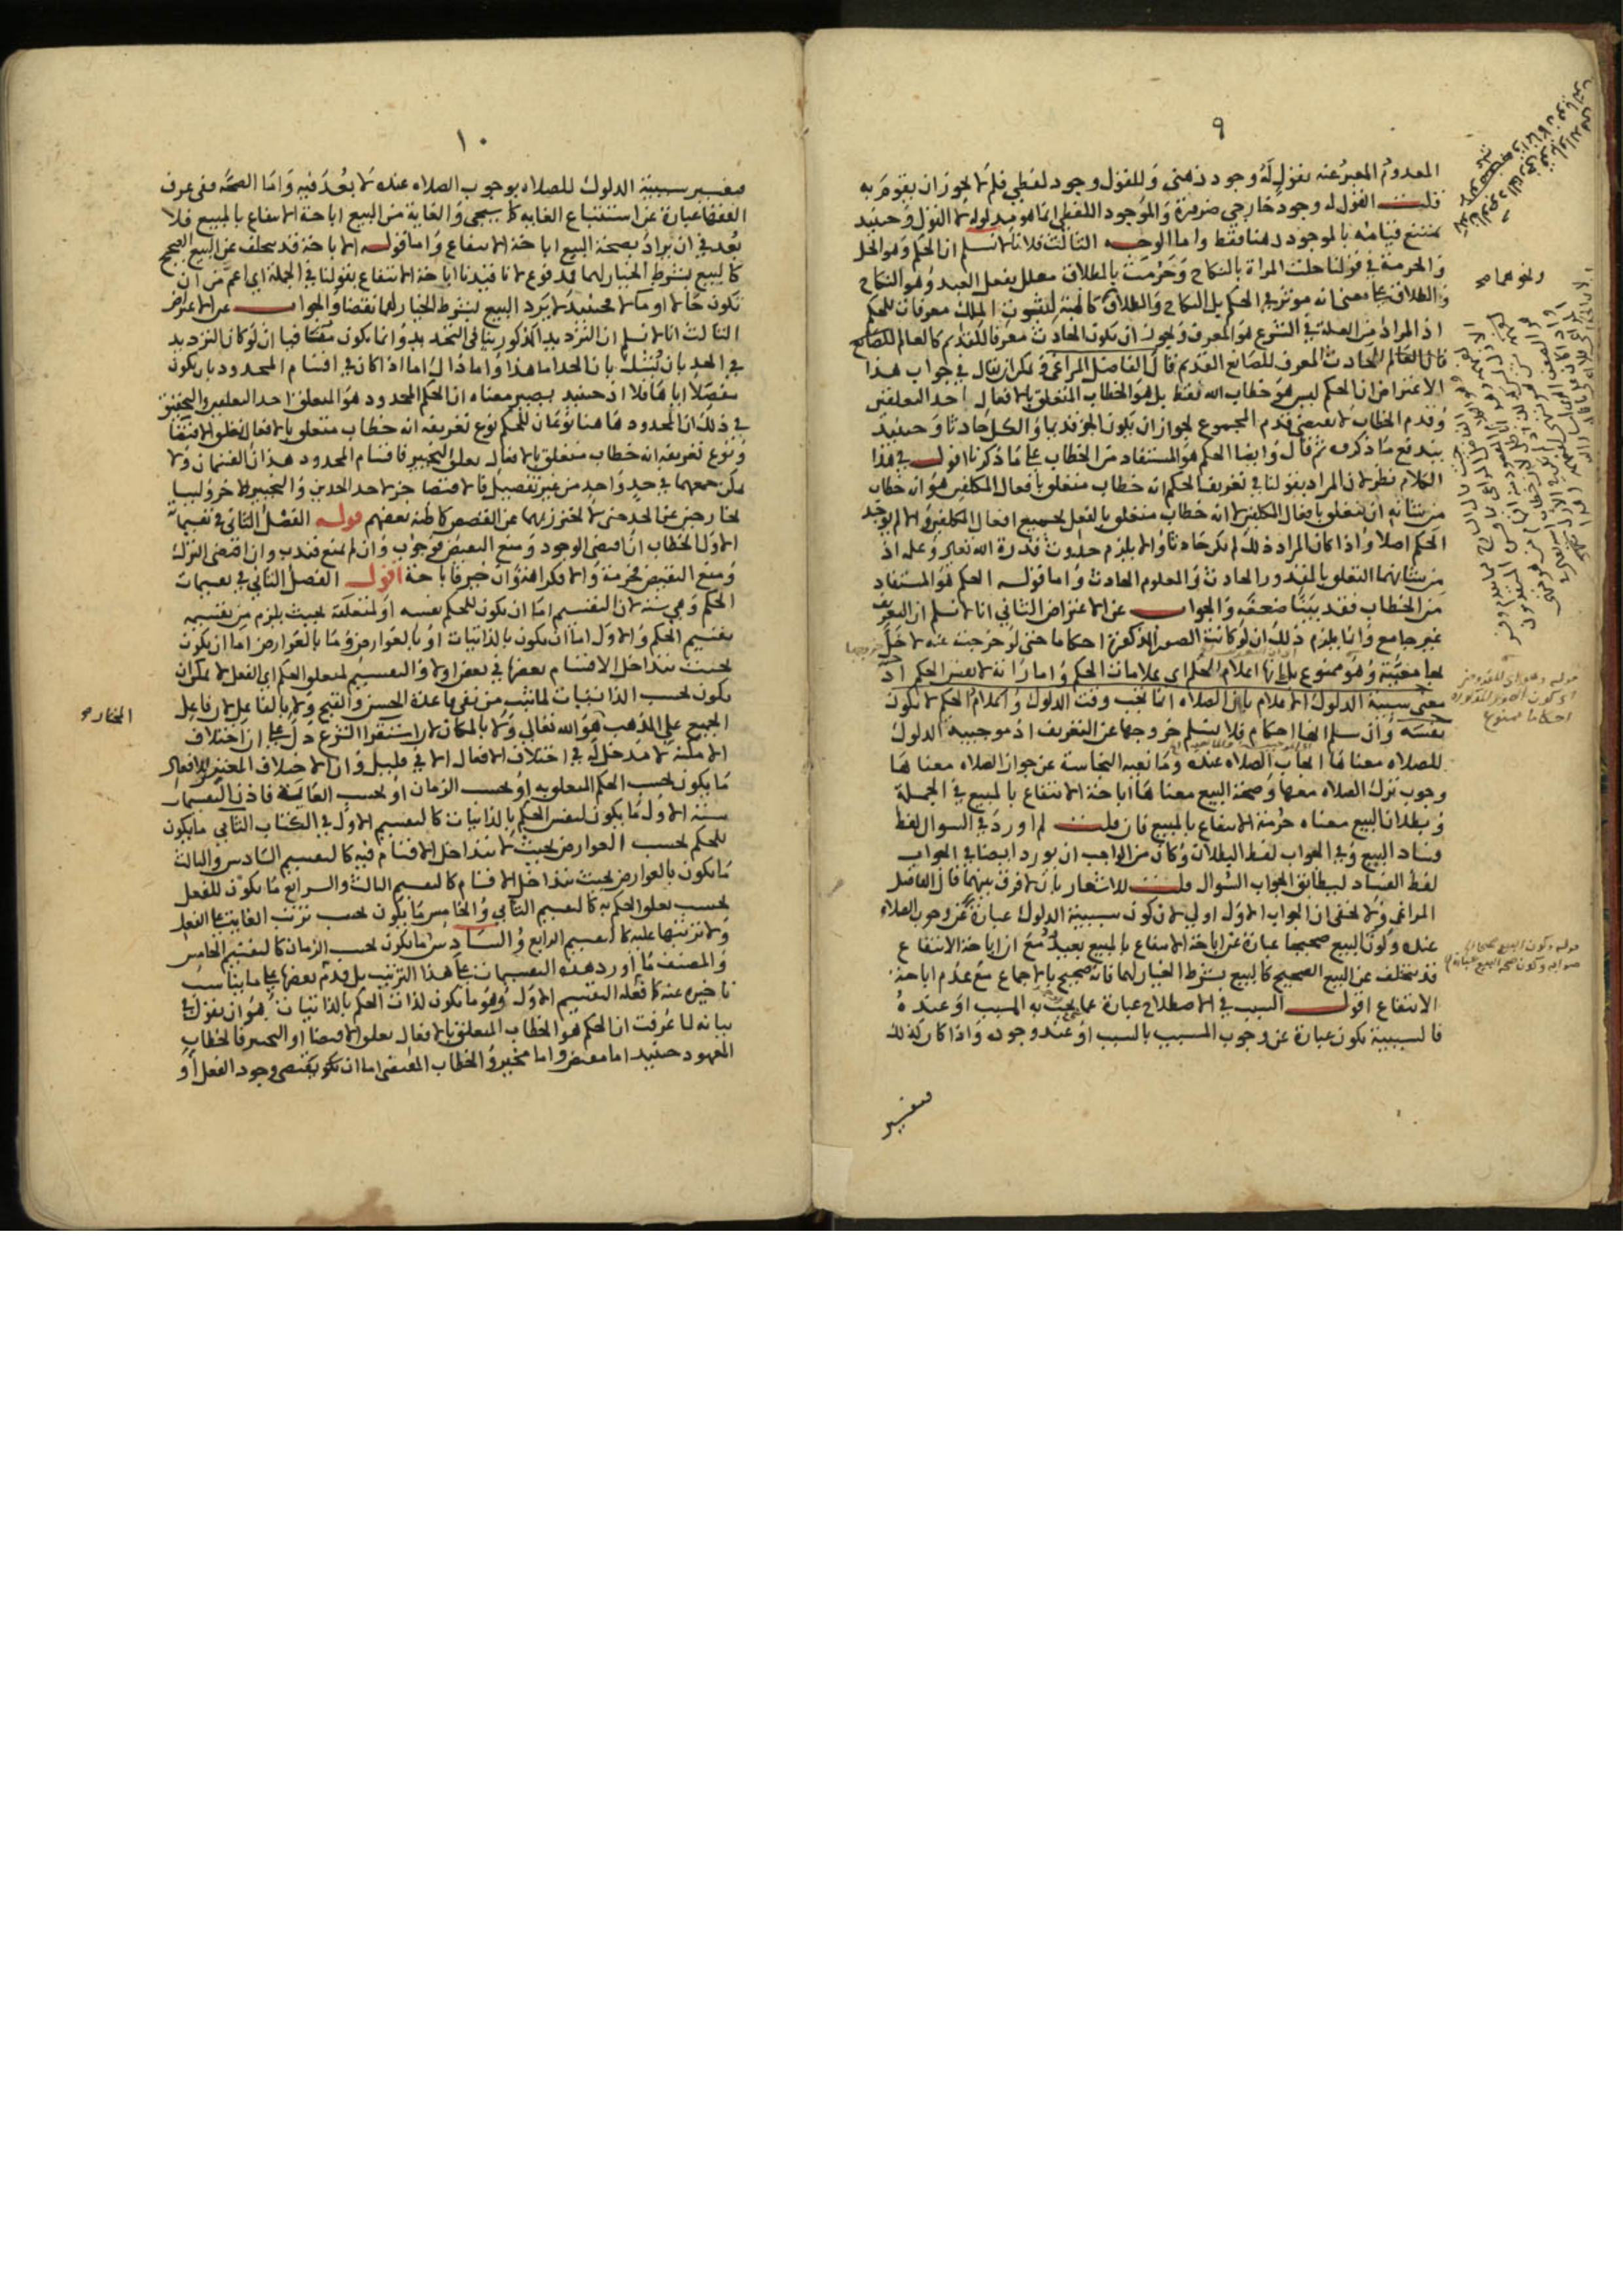 ٩
المعدوم المعبر عنه بقول له وجود ذهني وللقول وجود لفظي فلم لا يجوز ان يقوم به
قلت القول له وجود خارجي ضرورة والموجود اللفظي انما هو مدلوله لا القول وحينيد
يمتنع قيامه بالموجود ذهنا فقط واما الوجه الثالث فلانا لا نسلم ان الحكم وهو الحل
والحرمة في قولنا حلت المراة بالنكاح وحرمت بالطلاق معلل بفعل العبد وهو النكاح
والطلاق على معنى انه موثر في الحكم بل النكاح والطلاق كالهبة لثبوت الملك معرفات للحكم
اذ المراد من العلة في الشرع هو المعرف ويجوز ان يكون الحادث معرفا للقديم كالعالم للصانع
فان العالم الحادث المعرف للصانع القديم قال الفاضل المراغي يمكن ان يقال في جواب هذا
الاعتراض ان الحكم ليس هو خطاب الله فقط بل هو الخطاب المتعلق بالافعال احد التعلقين
وقدم الخطاب لا يقتضي قدم المجموع لجواز ان يكون الجزء قديما والكل حادثا وحينيد
يندفع ما ذكره ثم قال وايضا الحكم هو المستفاد من الخطاب على ما ذكرنا اقول في هذا
الكلام نظر لان المراد بقولنا في تعريف الحكم انه خطاب متعلق بافعال المكلفين هو انه خطاب
من شانه ان يتعلق بافعال المكلفين لا انه خطاب متعلق بالفعل بجميع افعال المكلفين والا لم يوجد
الحكم اصلا واذا كان المراد ذلك لم يكن حادثا والا يلزم حدوث قدرة الله تعالى وعلمه اذ
من شانهما التعلق بالمقدور الحادث والمعلوم الحادث واما قوله الحكم هو المستفاد
من الخطاب فقد بينا ضعفه والجواب عن الاعتراض الثاني انا لا نسلم ان التعريف
غير جامع وانما يلزم ذلك ان لو كانت الصور المذكورة احكاما حتى لو خرجت عنه لاخل
بها معيته وهو ممنوع بل انها اعلام الحكم اي علامات الحكم وامارا نه لا نفس الحكم اذ
معنى سببية الدلوك الاعلام بان الصلاه انما تجب وقت الدلوك واعلام الحكم لا يكون
نفسه وان سلم انها احكام فلا نسلم خروجها عن التعريف اذ موجبية الدلوك
للصلاه معناها ايجاب الصلاه عنده ومانعية النجاسة عن جواز الصلاه معناها
وجوب ترك الصلاه معها وصحة البيع معناها اباحة الانتفاع بالمبيع في الجملة
وبطلان البيع معناه حرمة الانتفاع بالمبيع فان قلت لم اورد في السوال لفظ
فساد البيع وفي الجواب لفظ البطلان وكان من الواجب ان يورد ايضا في الجواب
لفظ الفساد ليطابق الجواب السوال قلت للاشعار بان لا فرق بينهما قال الفاضل
المراغي ولا يخفى ان الجواب الاول اولى لان كون سببية الدلوك عبارة عن وجوب الصلاه
عنده وكون البيع صحيحا عبارة عن اباحة الانتفاع بالمبيع بعيد مع ان اباحة الانتفاع
قد تتخلف عن البيع الصحيح كالبيع بشرط الخيار لهما فانه صحيح بالاجماع مع عدم اباحة
الانتفاع اقول السبب في الاصطلاح عبارة عما يجب به المسبب او عنده
فالسببية تكون عبارة عن وجوب المسبب بالسبب او عند وجوده واذا كان كذلك
فتفسير
قوله وهو اي للقدوم
اي كون الصور المذكورة
احكاما ممنوع
قوله وكون البيع صحيحا
صوابه وكون صحة البيع عبارة
١٠
فتفسير سببية الدلوك للصلاه بوجوب الصلاه عنده لا بعد فيه واما الصحة ففي عرف
الفقها عبارة عن استتباع الغايه كما سيجي والغاية من البيع اباحة الانتفاع بالمبيع فلا
بعد في ان يراد بصحة البيع اباحة الانتفاع واما قوله الاباحة قد تتخلف عن البيع الصحيح
كالبيع بشرط الخيار لهما فمدفوع لانا قيدنا اباحة الانتفاع بقولنا في الجملة اي اعم من ان
تكون حالا او مالا فحينيذ لا يرد البيع بشرط الخيار لهما نقضا والجواب عن الاعتراض
الثالث انا لا نسلم ان الترديد المذكور ينافي التحديد وانما يكون منافيا ان لو كان الترديد
في الحد بان يشك بان الحد اما هذا واما ذاك اما اذا كان في اقسام المحدود بان يكون
مفصلا اياها فلا اذ حينيد يصير معناه ان الحكم المحدود هو المتعلق احد التعلقين والتحقيق
في ذلك ان المحدود هاهنا نوعان للحكم نوع تعريفه انه خطاب متعلق بالافعال تعلق الاقتضا
ونوع تعريفه انه خطاب متعلق بالافعال تعلق التخيير فاقسام المحدود هذان القسمان ولا
يمكن جمعهما في حد واحد من غير تفصيل فالاقتضا جزء احد الحدين والتخيير للاخر وليسا
بخارجين عن الحد حتى لا يحترز بهما عن القصص كما ظنه بعضهم قوله الفصل الثاني في تقسيماته
الاول الخطاب ان اقتضى الوجود ومنع النقيض فوجوب وان لم يمنع فندب وان اقتضى الترك
ومنع النقيض فحرمة والا فكراهة وان خير فاباحة اقول الفصل الثاني في تقسيمات
الحكم وهي ستة لان التقسيم اما ان يكون للحكم نفسه او لمتعلقه بحيث يلزم من تقسيمه
تقسيم الحكم والاول اما ان يكون بالذاتيات او بالعوارض وما بالعوارض اما ان يكون
بحيث تتداخل الاقسام بعضها في بعض اولا والتقسيم لمتعلق الحكم اي الفعل لا يمكن ان
يكون بحسب الذاتيات لما ثبت من نفي قاعدة الحسن والقبح ولا بالفاعل لان فاعل
الجميع على المذهب هو الله تعالى ولا بالمكان لان استقرا الشرع دل على ان اختلاف
الامكنة لا مدخل له في اختلاف الافعال الا في قليل وان الاختلاف المعتبر للافعال
ما يكون بحسب الحكم المتعلق به او بحسب الزمان او بحسب الغاية فاذن التقسيمات
ستة الاول ما يكون لنفس الحكم بالذاتيات كالتقسيم الاول في الكتاب الثاني ما يكون
للحكم بحسب العوارض بحيث لا تتداخل الاقسام فيه كالتقسيم السادس والثالث
ما يكون بالعوارض بحيث تتداخل الاقسام كالتقسيم الثالث والرابع ما يكون للفعل
بحسب تعلق الحكم به كالتقسيم الثاني والخامس ما يكون بحسب ترتب الغاية على الفعل
ولا ترتبها عليه كالتقسيم الرابع والسادس ما يكون بحسب الزمان كالتقسيم الخامس
والمصنف ما اورد هذه التقسيمات على هذا الترتيب بل قدم بعضها على ما يناسب
تاخيره عنه كما فعله التقسيم الاول وهو ما يكون لذات الحكم بالذاتيات هو ان نقول
بيانه لما عرفت ان الحكم هو الخطاب المتعلق بالافعال تعلق الاقتضا او التخيير فالخطاب
المعهود حينيد اما مقتض واما مخير والخطاب المقتضي اما ان يكون يقتضي وجود الفعل او
المختاره